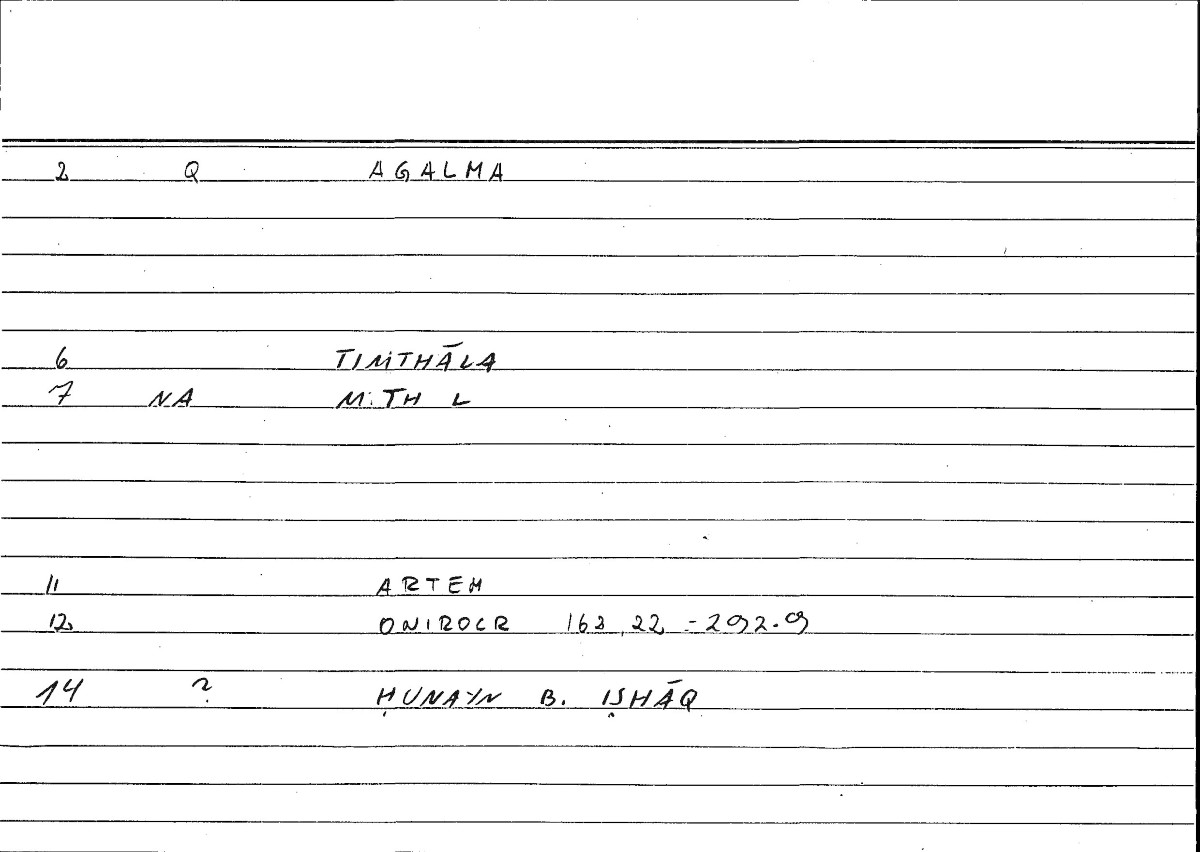 2 Q AGALMA
6 TIMTHĀLA
7 NA M TH L
11 ARTEM
12 ONIROCR 163,22 = 292.9
14 ? ḤUNAYN B. IṢHĀQ